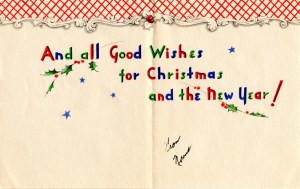 And all Good Wishes
for Christmas
and the New Year!
From